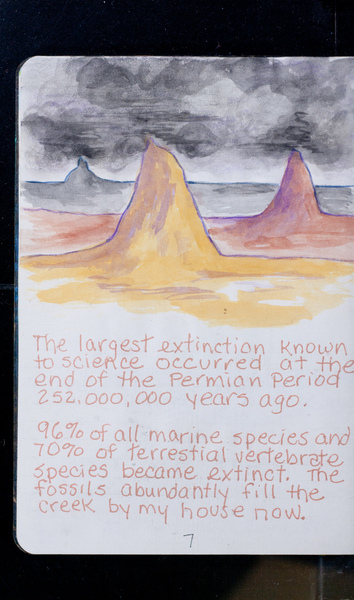 The largest extinction known
to science occurred at the
end of the Permian Period
252.000,000 years ago.
96% of all marine species and
70% of terrestial vertebrate
species became extinct. The
fossils abundantly fill the
creek by my house now.
7